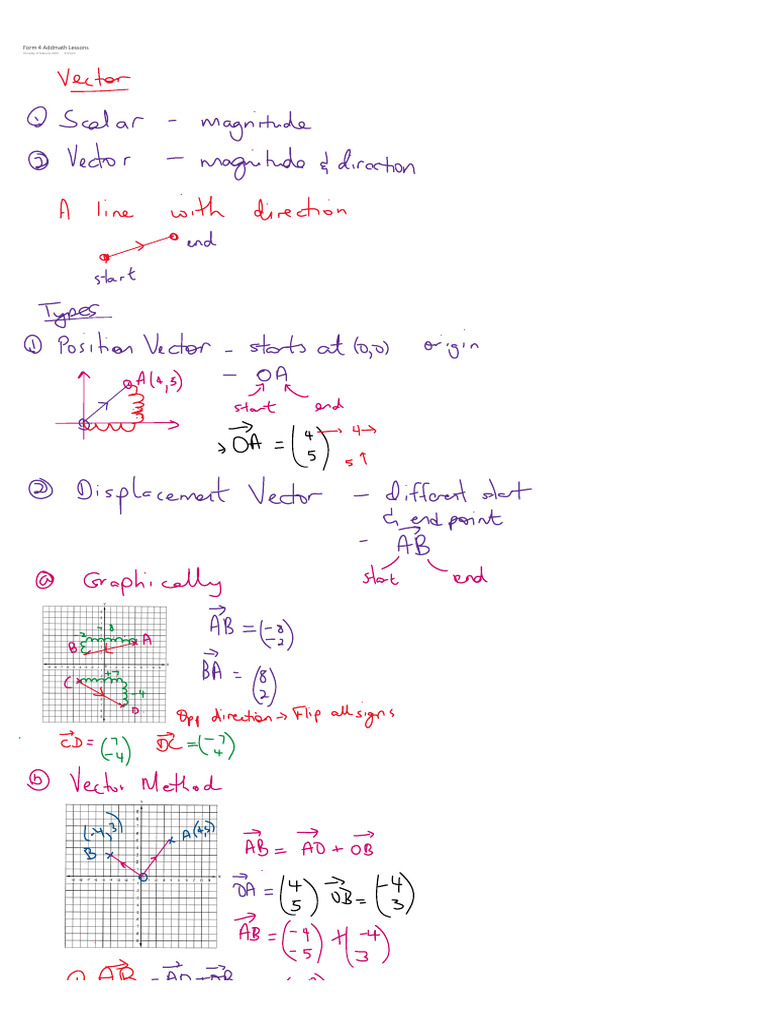 Form 4 Addmath Lessons
Vector
① Scalar - magnitude
② Vector - magnitude & diraction
A line with direction
end
start
Types
① Position Vector - starts at (0,0) origin
A(4,5) - OA
start end
→ OA = (4 5) → 4→
5↑
② Displacement Vector - different start
& end point
- AB
start end
ⓐ Graphically
-8
B A
-2
AB = (-8 -2)
BA = (8 2)
+7
C
-4
D
Opp direction → Flip all signs
CD = (7 -4) DC = (-7 4)
ⓑ Vector Method
(-4,3) A(4,5)
B
AB = AO + OB
OA = (4 5) OB = (-4 3)
AB = (-4 -5) + (-4 3)